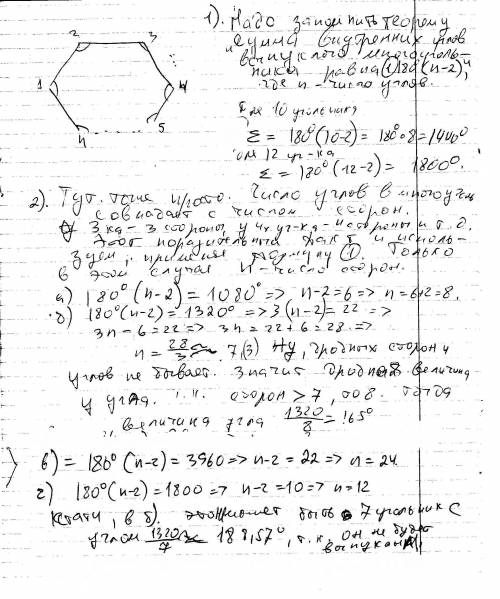 1). Надо запомнить теорему
"сумма внутренних углов
выпуклого многоуголь-
ника равна (1) 180(n-2)",
где n - число углов.
2 3
1 4
n 5
Для 10 угольника
Σ = 180°(10-2) = 180°·8 = 1440°
12 уг-ка
Σ = 180°(12-2) = 1800°.
2). Тут тоже просто. Число углов в многоуг
совпадает с числом сторон.
У 3ка - 3 стороны, у 4х уг-ка - 4 стороны и т.д.
Этот поразительный факт и исполь-
зуем, применяя формулу (1). Только
в этом случае n - число сторон.
а) 180°(n-2) = 1080° => n-2=6 => n=6+2=8.
б) 180°(n-2) = 1320° => 3(n-2) = 22 =>
3n-6=22 => 3n=22+6=28 =>
n = 28/3 ≈ 7,(3) Ну, дробных сторон и
углов не бывает. Значит дробная величина
у угла. сторон > 7, 8. Тогда
величина угла 1320/8 = 165°
в) = 180°(n-2) = 3960 => n-2 = 22 => n = 24
г) 180°(n-2) = 1800 => n-2 = 10 => n = 12
Кстати, в б). может быть 7 угольник с
углом 1320/7 ≈ 188,57°, т.к. он не будет
выпуклым.